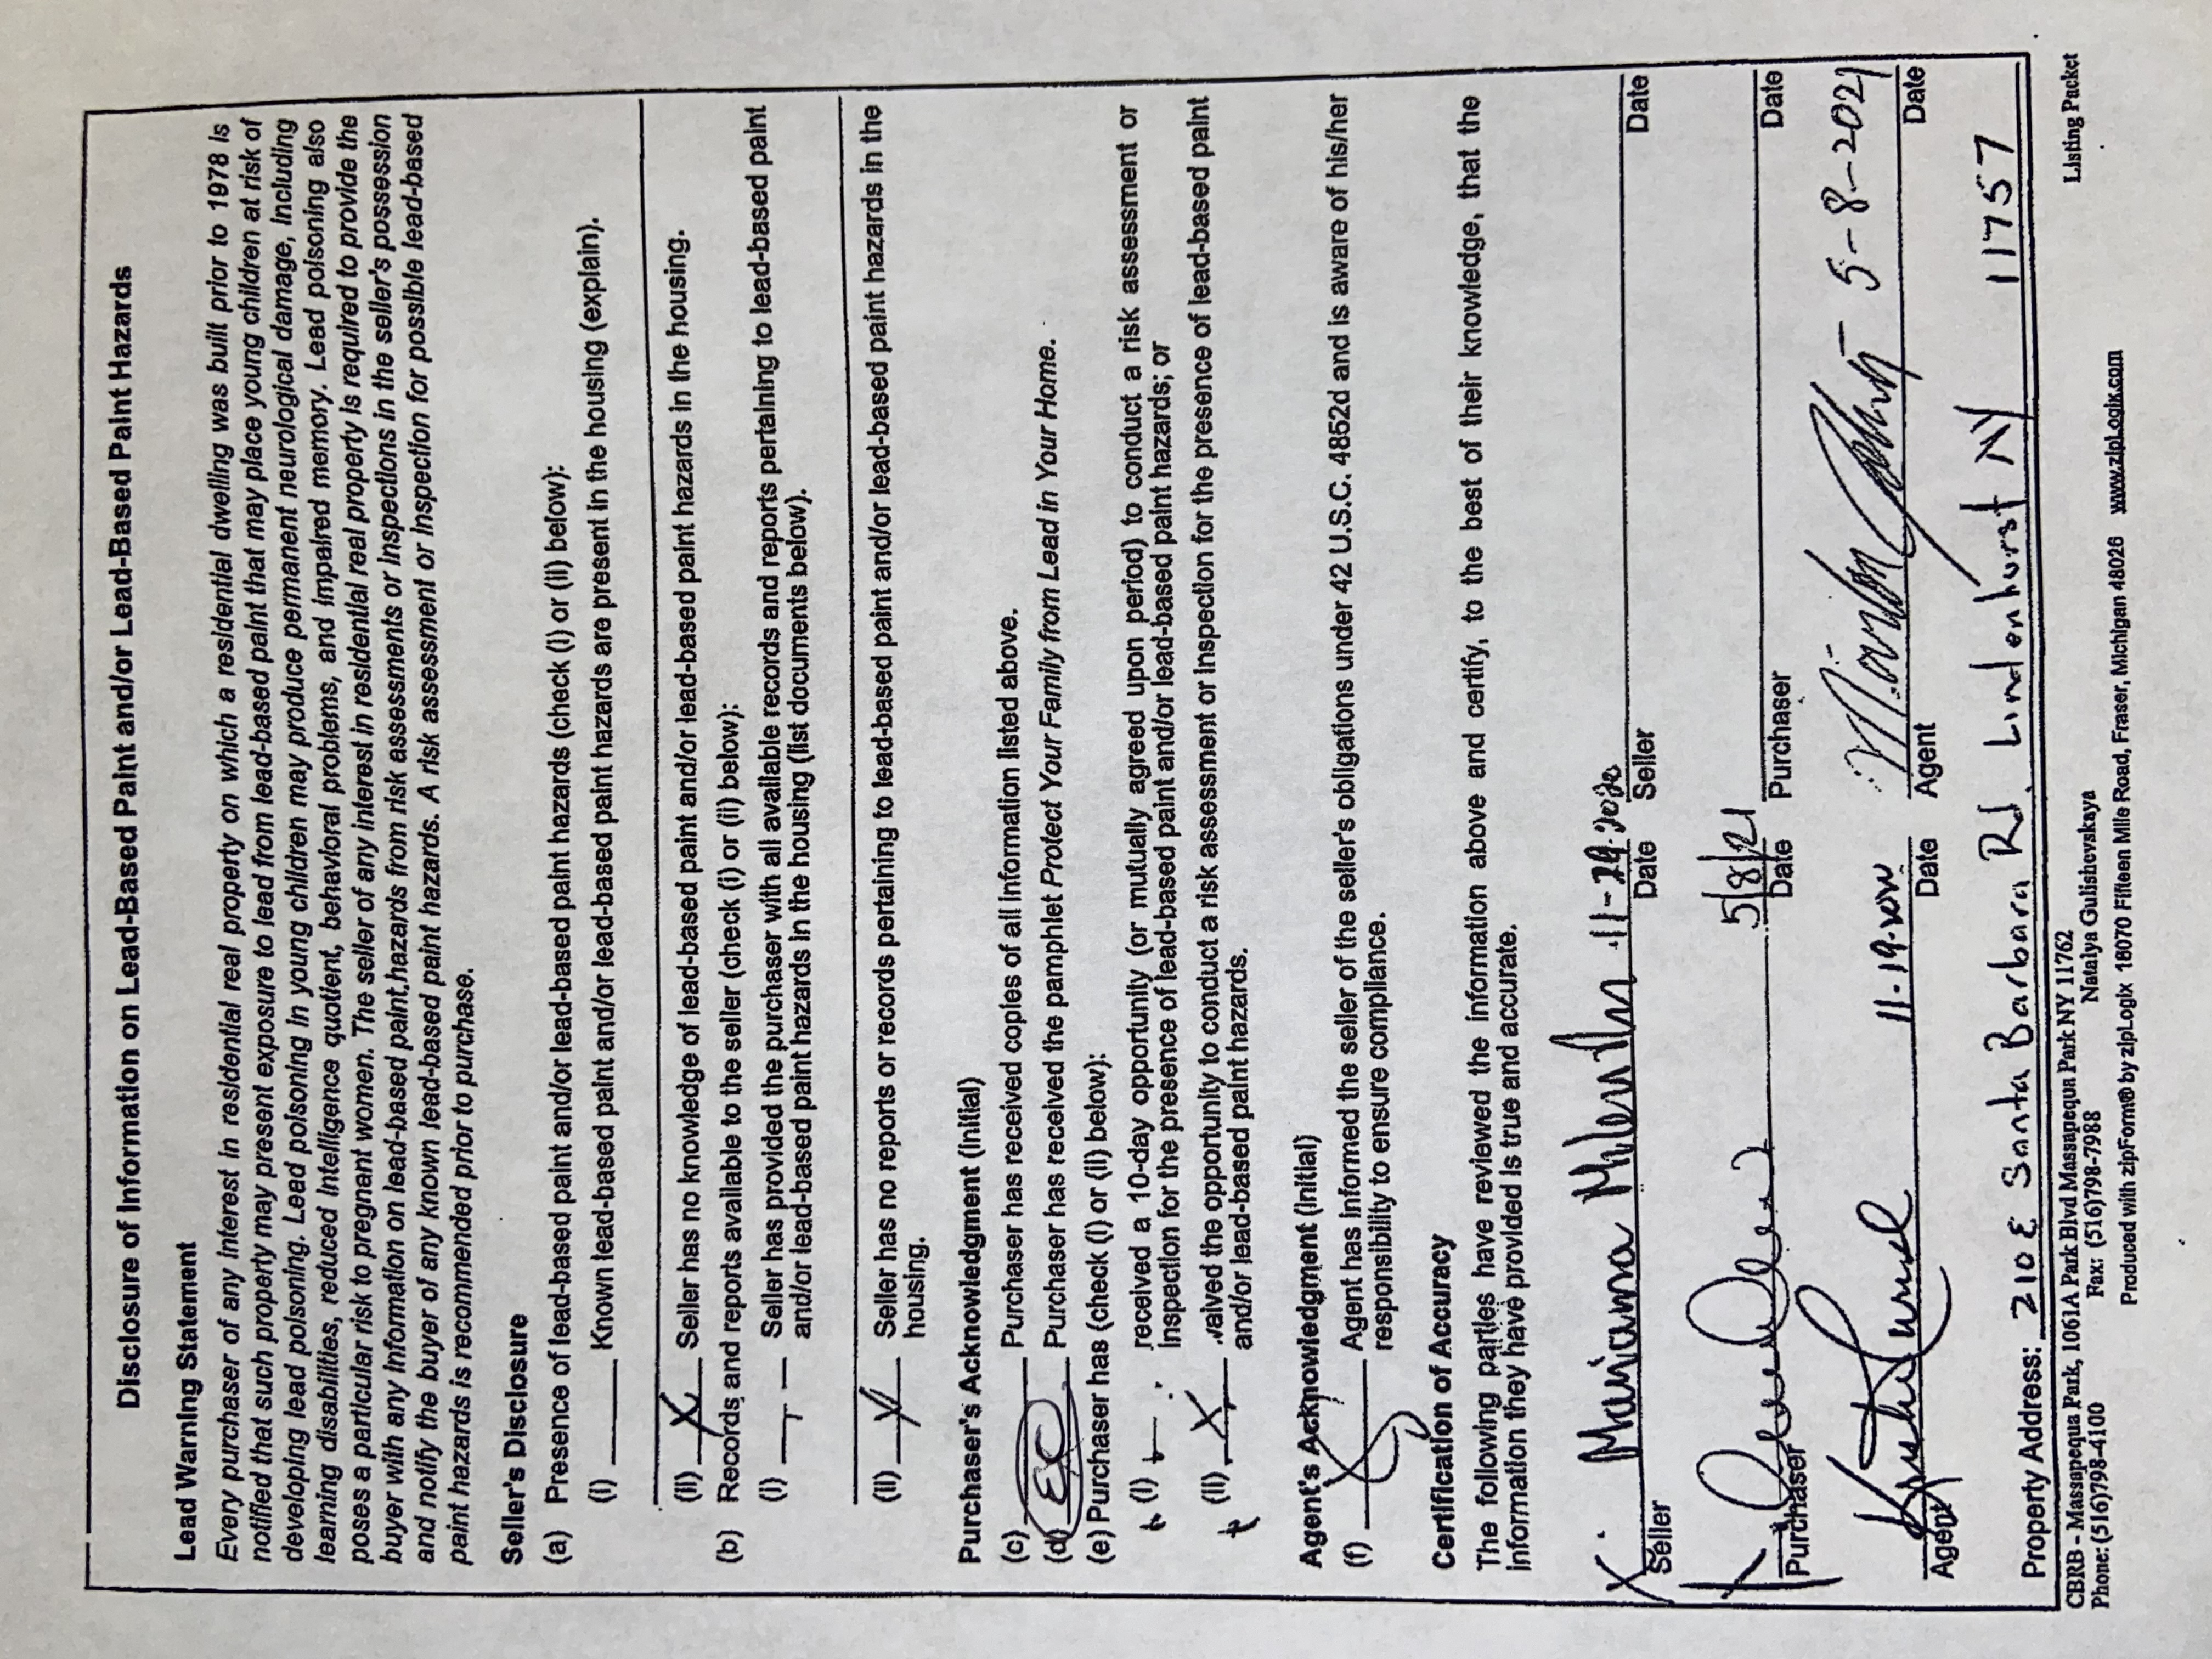 Disclosure of Information on Lead-Based Paint and/or Lead-Based Paint Hazards
Lead Warning Statement
Every purchaser of any interest in residential real property on which a residential dwelling was built prior to 1978 is
notified that such property may present exposure to lead from lead-based paint that may place young children at risk of
developing lead poisoning. Lead poisoning in young children may produce permanent neurological damage, including
learning disabilities, reduced intelligence quotient, behavioral problems, and impaired memory. Lead poisoning also
poses a particular risk to pregnant women. The seller of any interest in residential real property is required to provide the
buyer with any information on lead-based paint hazards from risk assessments or inspections in the seller's possession
and notify the buyer of any known lead-based paint hazards. A risk assessment or inspection for possible lead-based
paint hazards is recommended prior to purchase.
Seller's Disclosure
(a) Presence of lead-based paint and/or lead-based paint hazards (check (i) or (ii) below):
(i) ______ Known lead-based paint and/or lead-based paint hazards are present in the housing (explain).
(ii) X Seller has no knowledge of lead-based paint and/or lead-based paint hazards in the housing.
(b) Records and reports available to the seller (check (i) or (ii) below):
(i) ______ Seller has provided the purchaser with all available records and reports pertaining to lead-based paint
and/or lead-based paint hazards in the housing (list documents below).
(ii) X Seller has no reports or records pertaining to lead-based paint and/or lead-based paint hazards in the
housing.
Purchaser's Acknowledgment (initial)
(c) ______ Purchaser has received copies of all information listed above.
(d) EC Purchaser has received the pamphlet Protect Your Family from Lead in Your Home.
(e) Purchaser has (check (i) or (ii) below):
(i) ______ received a 10-day opportunity (or mutually agreed upon period) to conduct a risk assessment or
inspection for the presence of lead-based paint and/or lead-based paint hazards; or
(ii) X waived the opportunity to conduct a risk assessment or inspection for the presence of lead-based paint
and/or lead-based paint hazards.
Agent's Acknowledgment (initial)
(f) ______ Agent has informed the seller of the seller's obligations under 42 U.S.C. 4852d and is aware of his/her
responsibility to ensure compliance.
Certification of Accuracy
The following parties have reviewed the information above and certify, to the best of their knowledge, that the
information they have provided is true and accurate.
X Mariama 11-29-2020
Seller Date Seller Date
5/8/21
Purchaser Date Purchaser Date
11-19-2020 Marlon 5-8-2021
Agent Date Agent Date
Property Address: 210 E Santa Barbara Rd. Lindenhurst NY 11757
CBRB - Massapequa Park, 1061A Park Blvd Massapequa Park NY 11762 Listing Packet
Phone: (516)798-4100 Fax: (516)798-7988 Natalya Gulishevskaya
Produced with zipForm® by zipLogix 18070 Fifteen Mile Road, Fraser, Michigan 48026 www.zipLogix.com